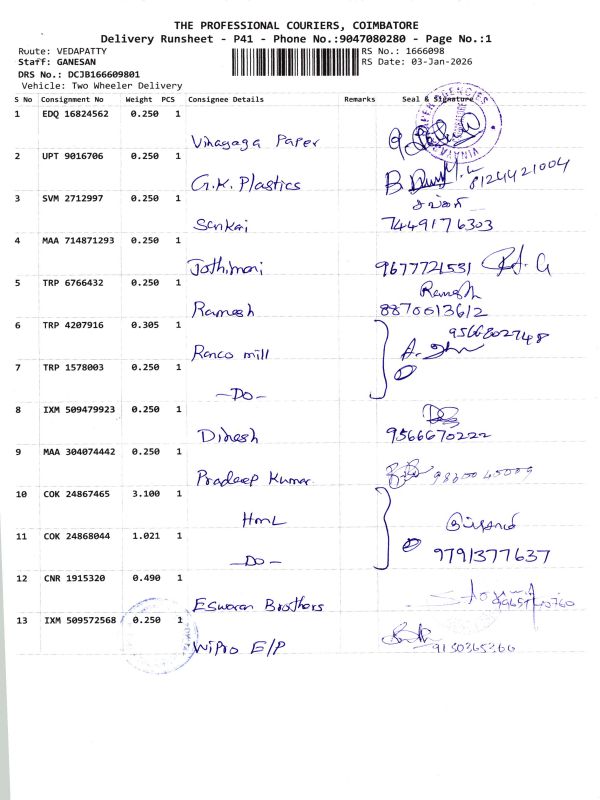 THE PROFESSIONAL COURIERS, COIMBATORE
Delivery Runsheet - P41 - Phone No.:9047080280 - Page No.:1
Route: VEDAPATTY RS No.: 1666098
Staff: GANESAN RS Date: 03-Jan-2026
DRS No.: DCJB166609801
Vehicle: Two Wheeler Delivery
S No Consignment No Weight PCS Consignee Details Remarks Seal & Signature
1 EDQ 16824562 0.250 1
Vinayaga Paper
2 UPT 9016706 0.250 1
G.K. Plastics 8124421004
3 SVM 2712997 0.250 1
Senkai 7449176303
4 MAA 714871293 0.250 1
Jothimani 9677721531
5 TRP 6766432 0.250 1
Ramesh
Ramesh 8870013612
6 TRP 4207916 0.305 1
9566802748
Ranco mill
7 TRP 1578003 0.250 1
-Do-
8 IXM 509479923 0.250 1
Dinesh 9566670222
9 MAA 304074442 0.250 1
Pradeep Kumar
10 COK 24867465 3.100 1
HML
11 COK 24868044 1.021 1
-Do- 9791377637
12 CNR 1915320 0.490 1
Eswaran Brothers
13 IXM 509572568 0.250 1
Wipro E/P 9150365366